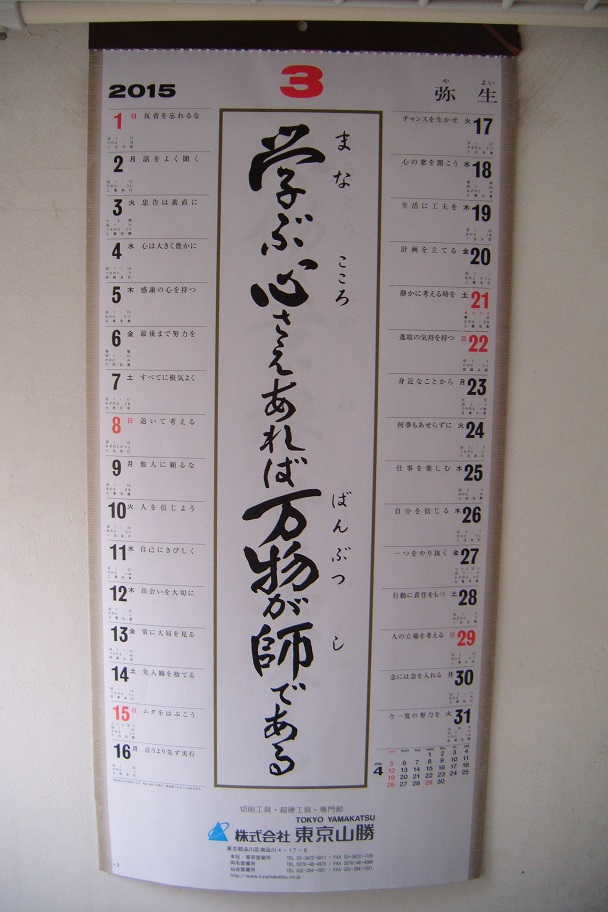 2015
3
や よい
弥生
まな こころ ばんぶつ し
学ぶ心さえあれば万物が師である
1 日 反省を忘れるな
2 月 話をよく聞く
3 火 忠告は素直に
4 水 心は大きく豊かに
5 木 感謝の心を持つ
6 金 最後まで努力を
7 土 すべてに根気よく
8 日 退いて考える
9 月 他人に頼るな
10 火 人を信じよう
11 水 自己にきびしく
12 木 出会いを大切に
13 金 常に大局を見る
14 土 先入観を捨てる
15 日 ムダをはぶこう
16 月 言うより先ず実行
チャンスを生かせ 火 17
心の窓を開こう 水 18
生活に工夫を 木 19
計画を立てる 金 20
静かに考える時を 土 21
進取の気持を持つ 日 22
身近なことから 月 23
何事もあせらずに 火 24
仕事を楽しむ 水 25
自分を信じる 木 26
一つをやり抜く 金 27
行動に責任をもつ 土 28
人の立場を考える 日 29
念には念を入れる 月 30
今一度の努力を 火 31
4
1 2 3 4
5 6 7 8 9 10 11
12 13 14 15 16 17 18
19 20 21 22 23 24 25
26 27 28 29 30
切削工具・超硬工具・専門館
TOKYO YAMAKATSU
株式会社 東京山勝
本社・東京営業所
仙台営業所